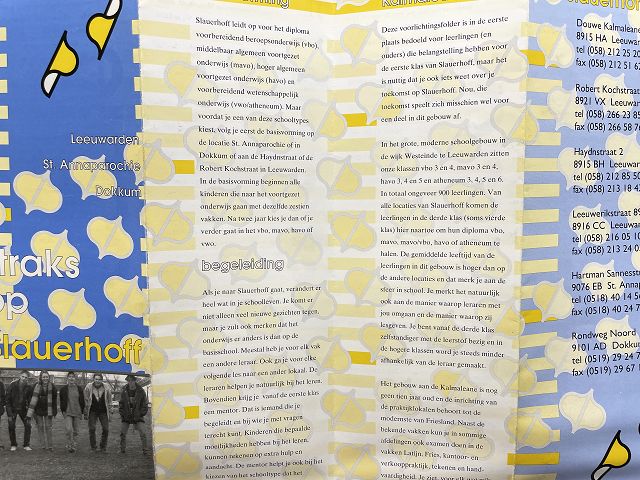 Leeuwarden
St. Annaparochie
Dokkum
traks
op
Slauerhoff
Slauerhoff leidt op voor het diploma
voorbereidend beroepsonderwijs (vbo),
middelbaar algemeen voortgezet
onderwijs (mavo), hoger algemeen
voortgezet onderwijs (havo) en
voorbereidend wetenschappelijk
onderwijs (vwo/atheneum). Maar
voordat je een van deze schooltypes
kiest, volg je eerst de basisvorming op
de locatie St. Annaparochie of in
Dokkum of aan de Haydnstraat of de
Robert Kochstraat in Leeuwarden.
In de basisvorming beginnen alle
kinderen die naar het voortgezet
onderwijs gaan met dezelfde zestien
vakken. Na twee jaar kies je dan of je
verder gaat in het vbo, mavo, havo of
vwo.
begeleiding
Als je naar Slauerhoff gaat, verandert er
heel wat in je schoolleven. Je komt er
niet alleen veel nieuwe gezichten tegen,
maar je zult ook merken dat het
onderwijs er anders is dan op de
basisschool. Meestal heb je voor elk vak
een andere leraar. Ook ga je voor elke
volgende les naar een ander lokaal. De
leraren helpen je natuurlijk bij het leren.
Bovendien krijg je vanaf de eerste klas
een mentor. Dat is iemand die je
begeleidt en bij wie je met vragen
terecht kunt. Kinderen die bepaalde
moeilijkheden hebben bij het leren,
kunnen rekenen op extra hulp en
aandacht. De mentor helpt je ook bij het
kiezen van het schooltype dat het
Deze voorlichtingsfolder is in de eerste
plaats bedoeld voor leerlingen (en
ouders) die belangstelling hebben voor
de eerste klas van Slauerhoff, maar het
is nuttig dat je ook iets weet over je
toekomst op Slauerhoff. Nou, die
toekomst speelt zich misschien wel voor
een deel in dit gebouw af.
In het grote, moderne schoolgebouw in
de wijk Westeinde te Leeuwarden zitten
onze klassen vbo 3 en 4, mavo 3 en 4,
havo 3, 4 en 5 en atheneum 3, 4, 5 en 6.
In totaal ongeveer 900 leerlingen. Van
alle locaties van Slauerhoff komen de
leerlingen in de derde klas (soms vierde
klas) hier naartoe om hun diploma vbo,
mavo, mavo/vbo, havo of atheneum te
halen. De gemiddelde leeftijd van de
leerlingen in dit gebouw is hoger dan op
de andere locaties en dat merk je aan de
sfeer in school. Je merkt het natuurlijk
ook aan de manier waarop leraren met
jou omgaan en de manier waarop zij
lesgeven. Je bent vanaf de derde klas
zelfstandiger met de leerstof bezig en in
de hogere klassen word je steeds minder
afhankelijk van de leraar gemaakt.
Het gebouw aan de Kalmaleane is nog
geen tien jaar oud en de inrichting van
de praktijklokalen behoort tot de
modernste van Friesland. Naast de
bekende vakken kun je in sommige
afdelingen ook examen doen in de
vakken Latijn, Fries, kantoor- en
verkooppraktijk, tekenen en hand-
vaardigheid. Je ziet, voor elk wat
Douwe Kalmaleane
8915 HA Leeuwar
tel (058) 212 25 20
fax (058) 212 51 62
Robert Kochstraat
8921 VX Leeuwar
tel (058) 266 23 85
fax (058) 266 58 76
Haydnstraat 2
8915 BH Leeuwar
tel (058) 212 85 50
fax (058) 213 18 42
Leeuwerikstraat
8916 CC Leeuwar
tel (058) 216 05 10
fax (058) 213 24 0
Hartman Sannesst
9076 EB St. Annap
tel (0518) 40 14 56
fax (0518) 40 24 7
Rondweg Noord
9101 AD Dokkum
tel (0519) 29 24 7
fax (0519) 29 67 1